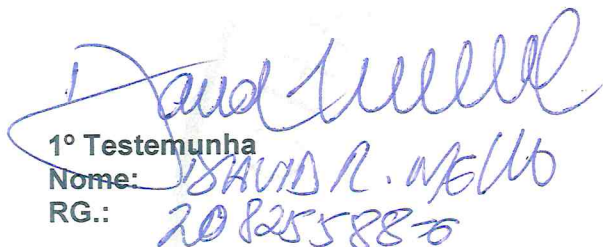 David Mello
1º Testemunha
Nome: DAVID R. MELLO
RG.: 20825588-6